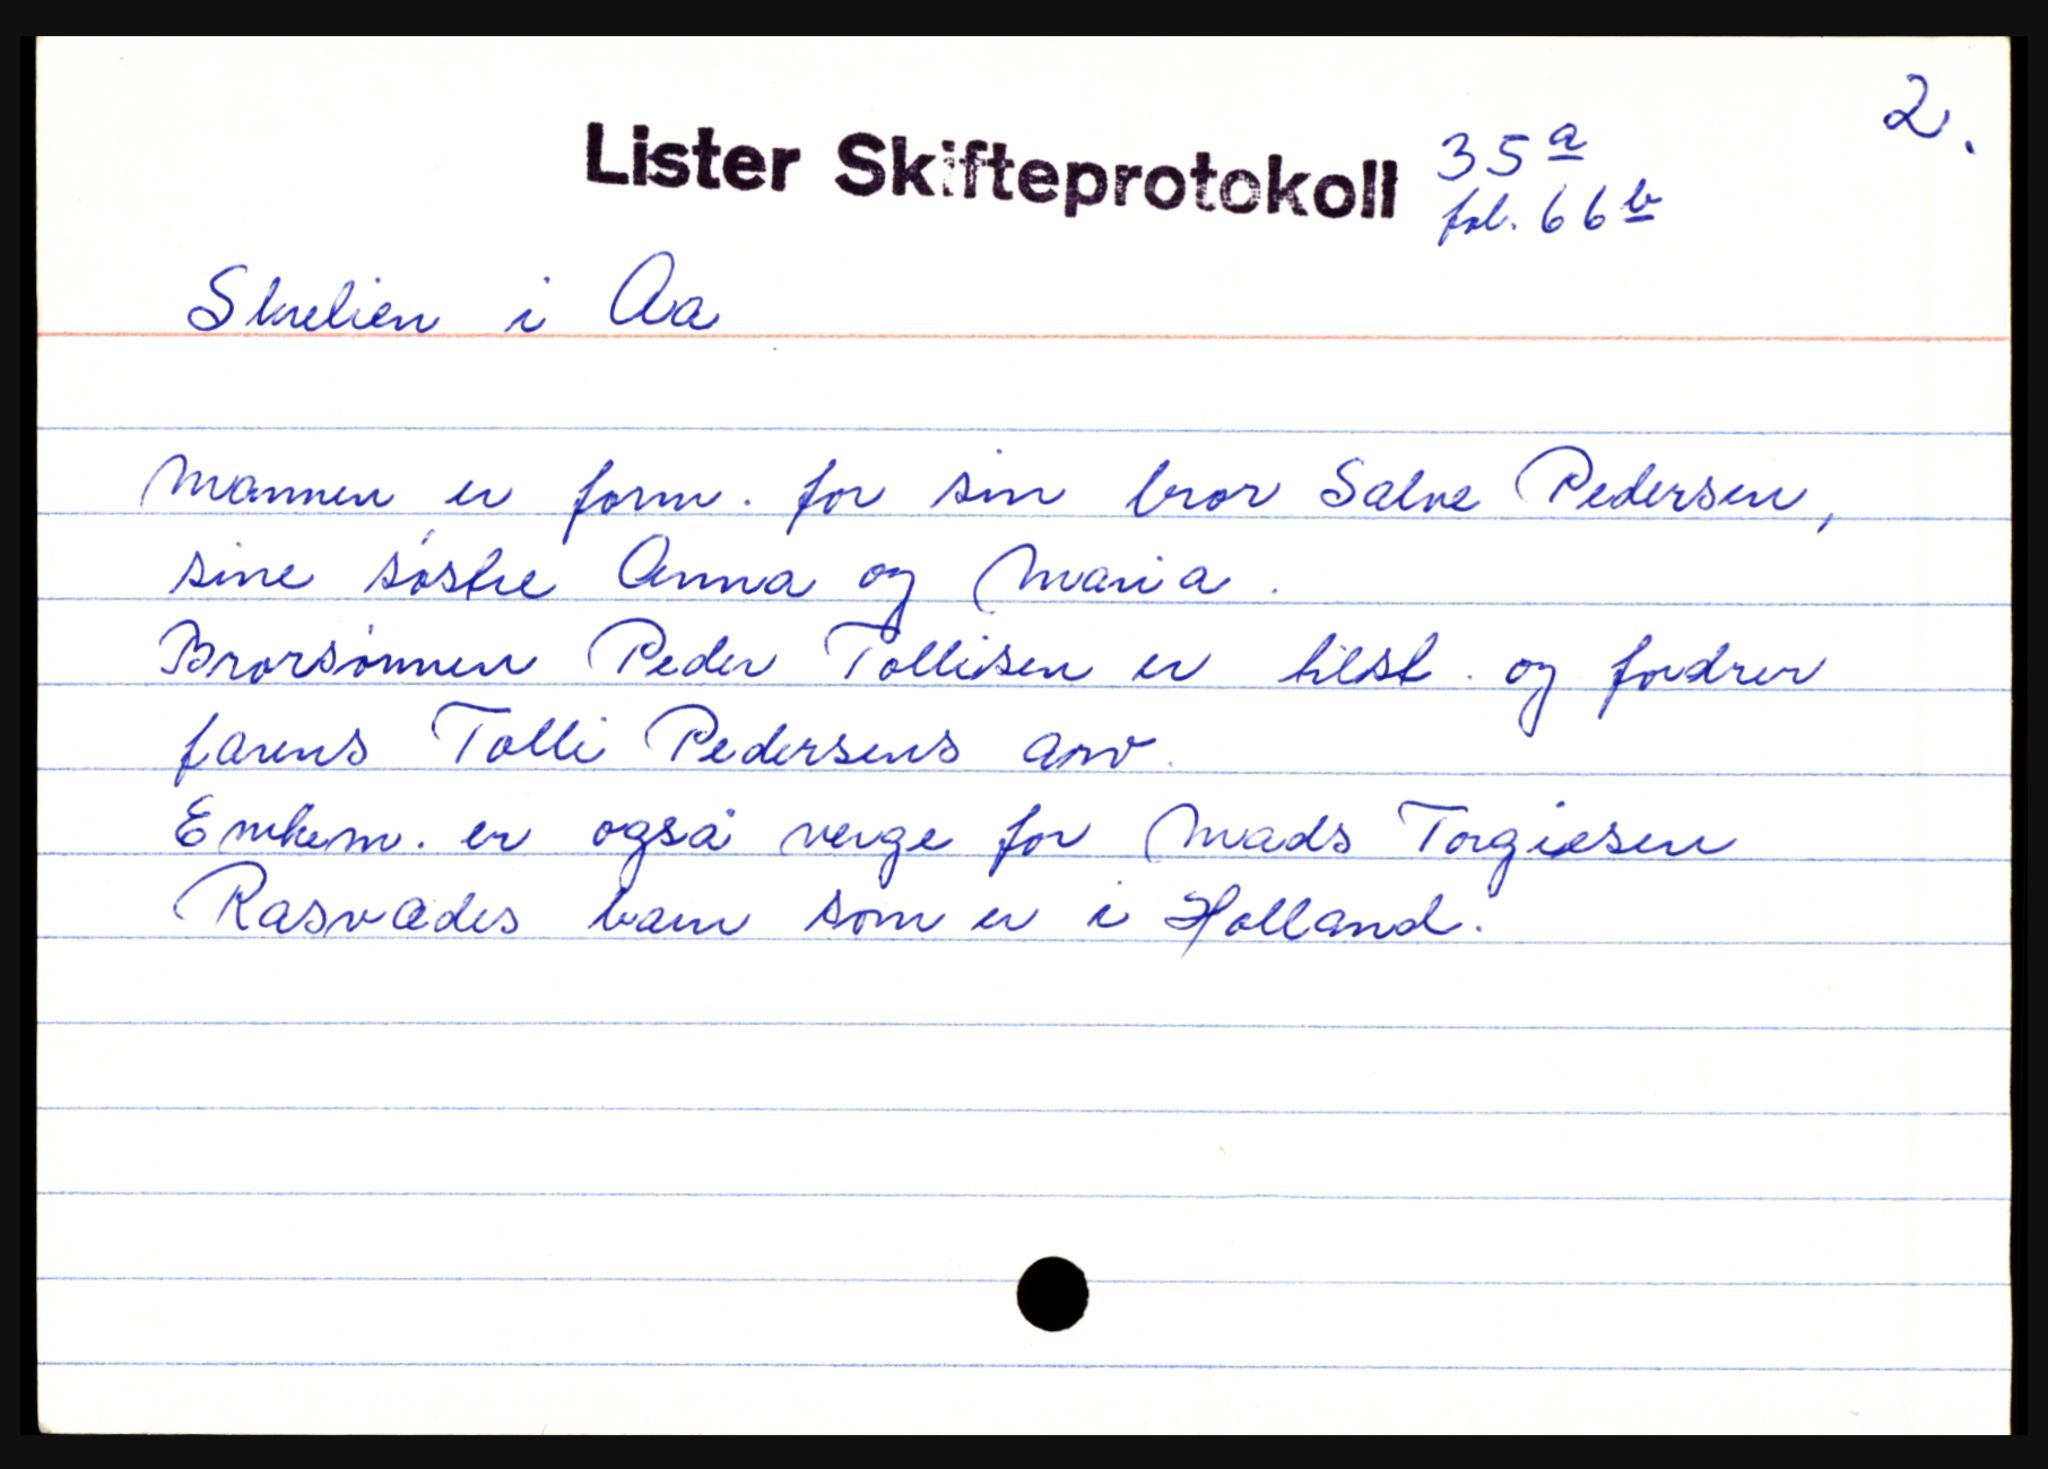 2.
Lister Skifteprotokoll 35 a
fol. 66 b
Skrelien i Aa
Mannen er form. for sin bror Salve Pedersen,
sine søstre Anna og Maria.
Brorsønnen Peder Tollisen er tilst. og fordrer
farens Tolli Pedersens arv.
Enkem. er også verge for Mads Torgiesen
Rasvådes barn som er i Holland.